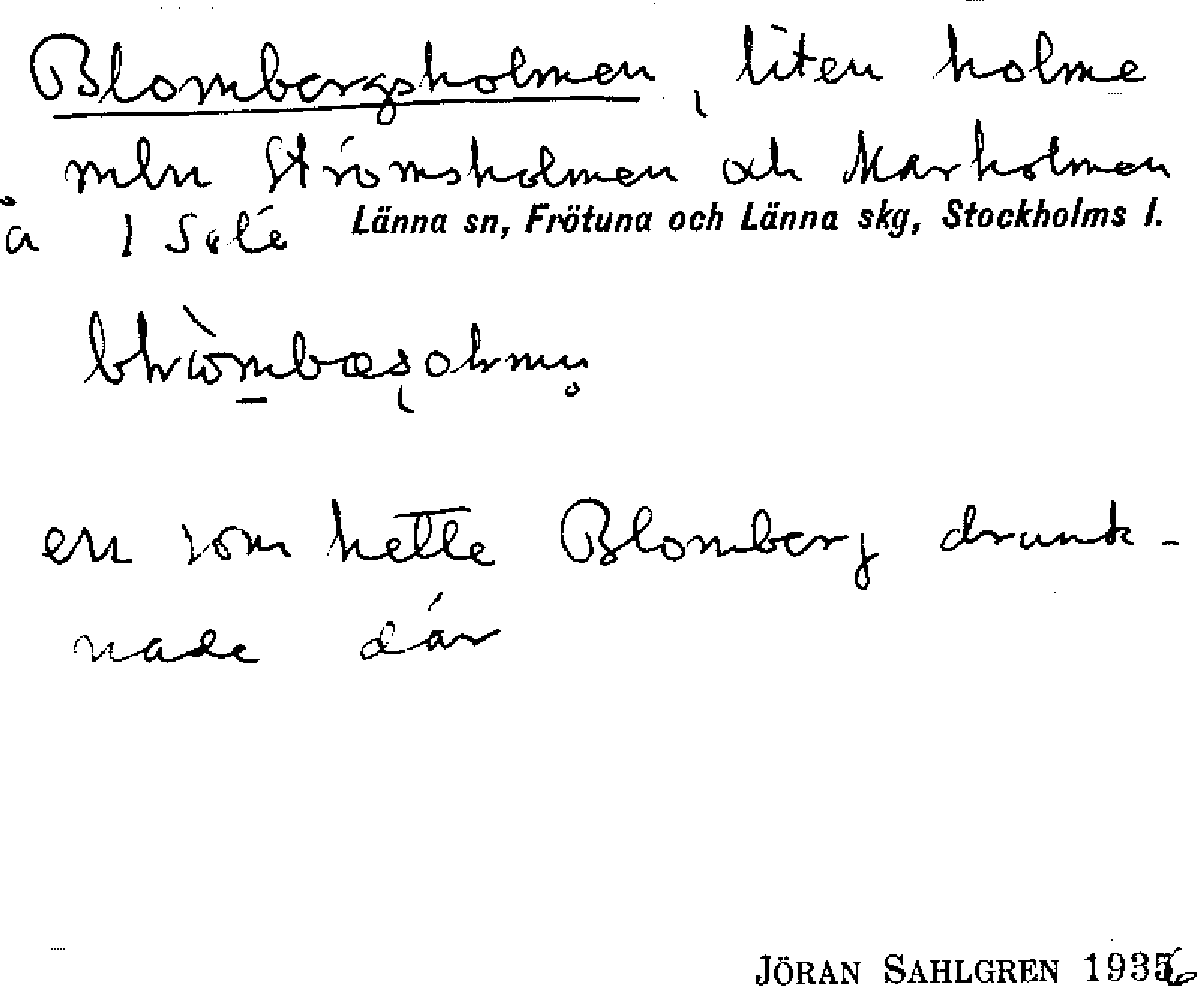 Blombergsholmen, liten holme
mln Strömsholmen och Marholmen
å 1 Solö Länna sn, Frötuna och Länna skg, Stockholms l.
en som hette Blomberg drunk-
nade där
JÖRAN SAHLGREN 1936